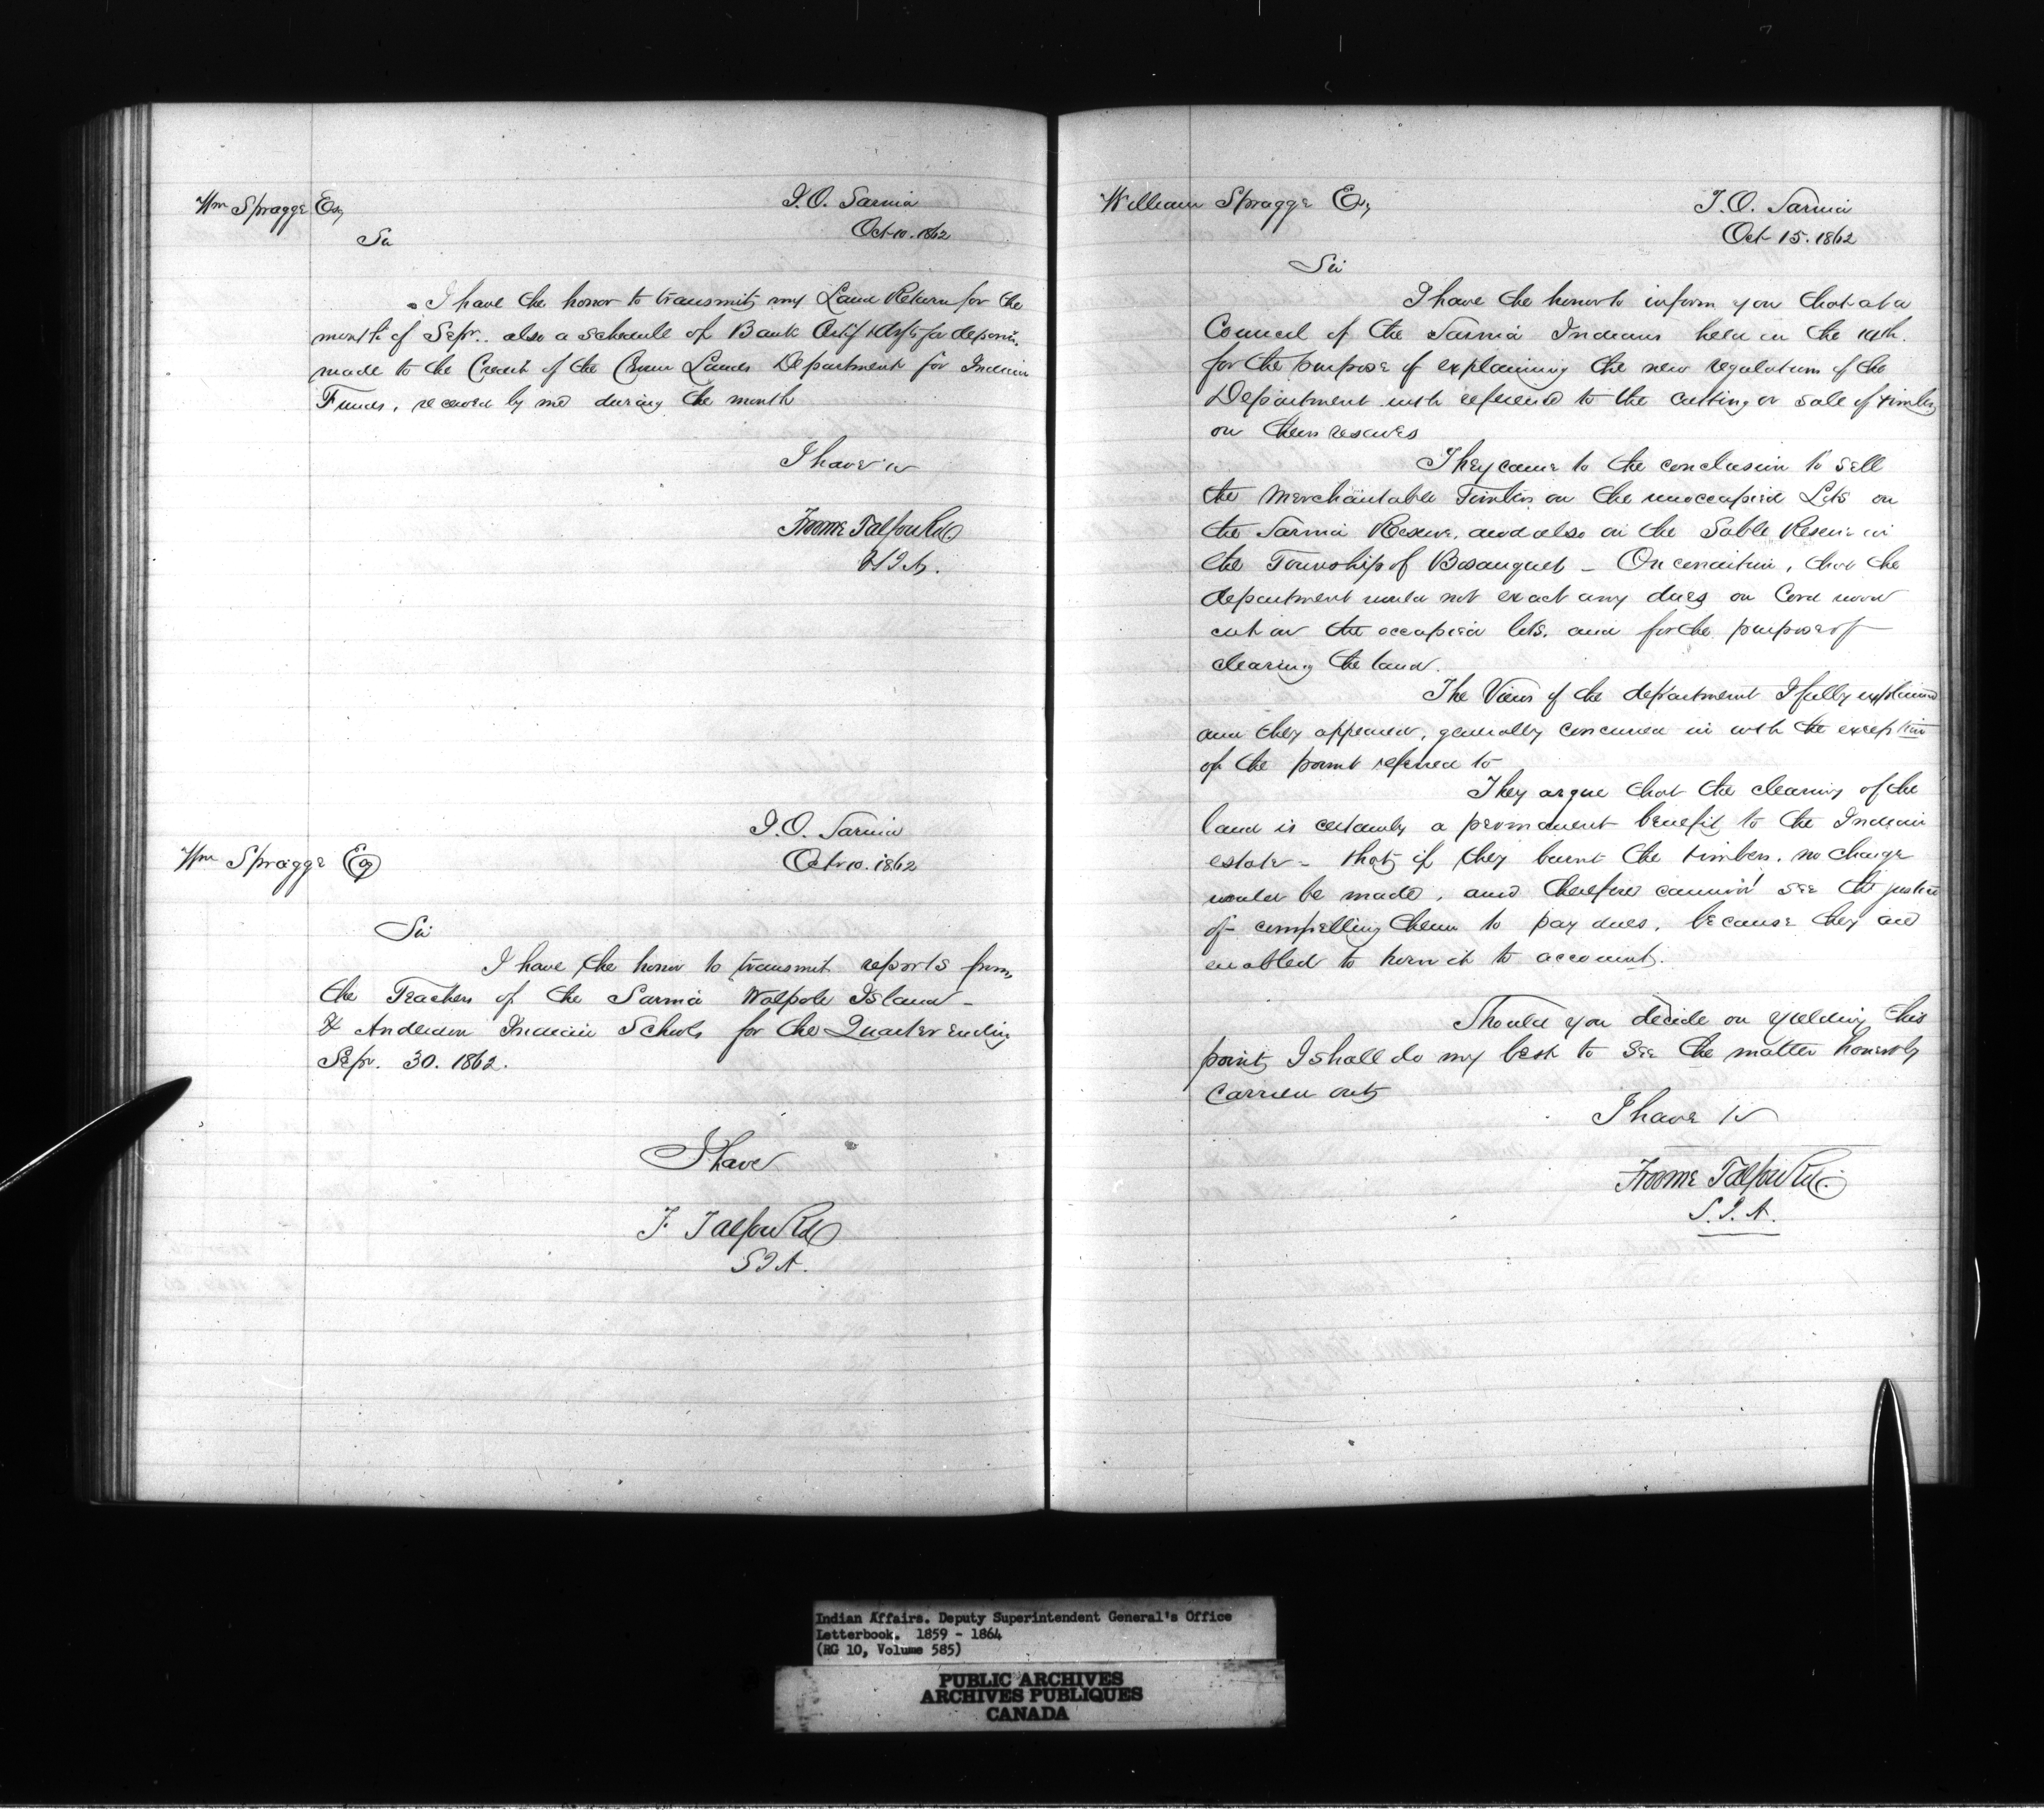 Wm Spragge Esq
I.O. Sarnia
Oct 10. 1862
Sir
I have the honor to transmit my Land Return for the
month of Sepr. also a schedule of Bank Certif for deposits
made to the Credit of the Crown Lands Department for Indian
Funds, received by me during the month
I have
Froome Talfourd
S I A.
I.O. Sarnia
Oct 10. 1862
Wm Spragge Esq
Sir
I have the honor to transmit reports from
the Teachers of the Sarnia Walpole Island -
& Anderdon Indian Schools for the Quarter ending
Sepr. 30. 1862.
I have
F. Talfourd
S I A.
William Spragge Esq
I.O. Sarnia
Oct 15. 1862
Sir
I have the honor to inform you that at a
Council of the Sarnia Indians held on the 14th.
for the purpose of explaining the new regulations of the
Department with reference to the cutting or sale of timber
on their reserves
They came to the conclusion to sell
the Merchantable Timber on the unoccupied Lots on
the Sarnia Reserve, and also on the Sable Reserve in
the Township of Bosanquet - On condition, that the
department would not exact any dues on Cord wood
cut on the occupied lots, and for the purpose of
clearing the land.
The Views of the department I fully explained
and they appeared, generally concurred in with the exception
of the point referred to
They argue that the clearing of the
land is certainly a permanent benefit to the Indian
estate - that if they burnt the timber, no charge
would be made, and therefore cannot see the justice
of compelling them to pay dues, because they are
enabled to turn it to account.
Should you decide on yielding this
point, I shall do my best to see the matter honestly
carried out
I have
Froome Talfourd
S.I.A.
Indian Affairs. Deputy Superintendent General's Office
Letterbook. 1859 - 1864
(RG 10, Volume 585)
PUBLIC ARCHIVES
ARCHIVES PUBLIQUES
CANADA